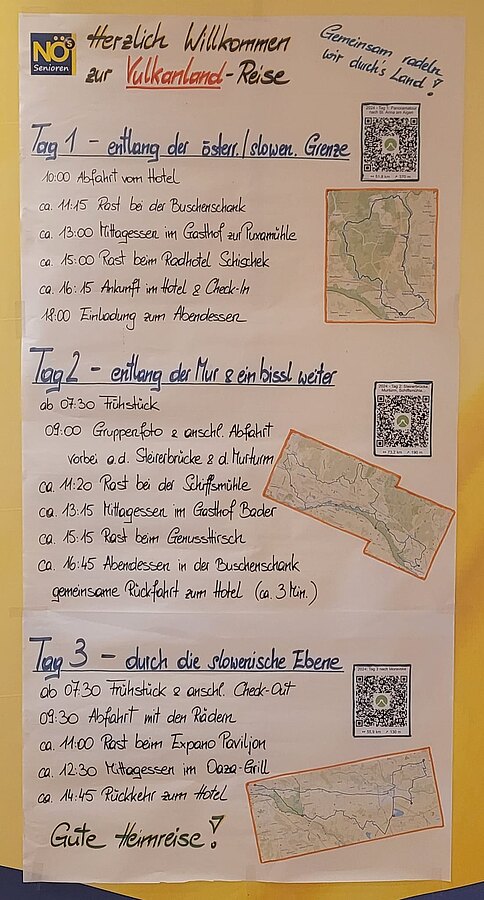 NÖs
Senioren
Herzlich Willkommen
zur Vulkanland-Reise
Gemeinsam radeln
wir durch's Land!
Tag 1 - entlang der österr./slowen. Grenze
10:00 Abfahrt vom Hotel
ca. 11:15 Rast bei der Buschenschank
ca. 13:00 Mittagessen im Gasthof zur Puxamühle
ca. 15:00 Rast beim Radhotel Schischek
ca. 16:15 Ankunft im Hotel & Check-In
18:00 Einladung zum Abendessen
2024 - Tag 1: Panoramatour
nach St. Anna am Aigen
51,8 km 570 m
Tag 2 - entlang der Mur & ein bissl weiter
ab 07:30 Frühstück
09:00 Gruppenfoto & anschl. Abfahrt
vorbei a.d. Steirerbrücke & d. Murturm
ca. 11:20 Rast bei der Schiffsmühle
ca. 13:15 Mittagessen im Gasthof Bader
ca. 15:15 Rast beim Genusshirsch
ca. 16:45 Abendessen in der Buschenschank
gemeinsame Rückfahrt zum Hotel (ca. 3 Min.)
2024 - Tag 2: Steirerbrücke,
Murturm, Schiffsmühle,
73,2 km 190 m
Tag 3 - durch die slowenische Ebene
ab 07:30 Frühstück & anschl. Check-Out
09:30 Abfahrt mit den Rädern
ca. 11:00 Rast beim Expano Pavillon
ca. 12:30 Mittagessen im Oaza-Grill
ca. 14:45 Rückkehr zum Hotel
2024: Tag 3 nach Moravske
130 m
Gute Heimreise!